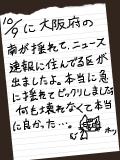 10/9に大阪府の
南が揺れて、ニュース
速報に住んでる区が
出ましたよ。本当に急
に揺れてビックリしました
何も壊れなくて本当
に良かった…。